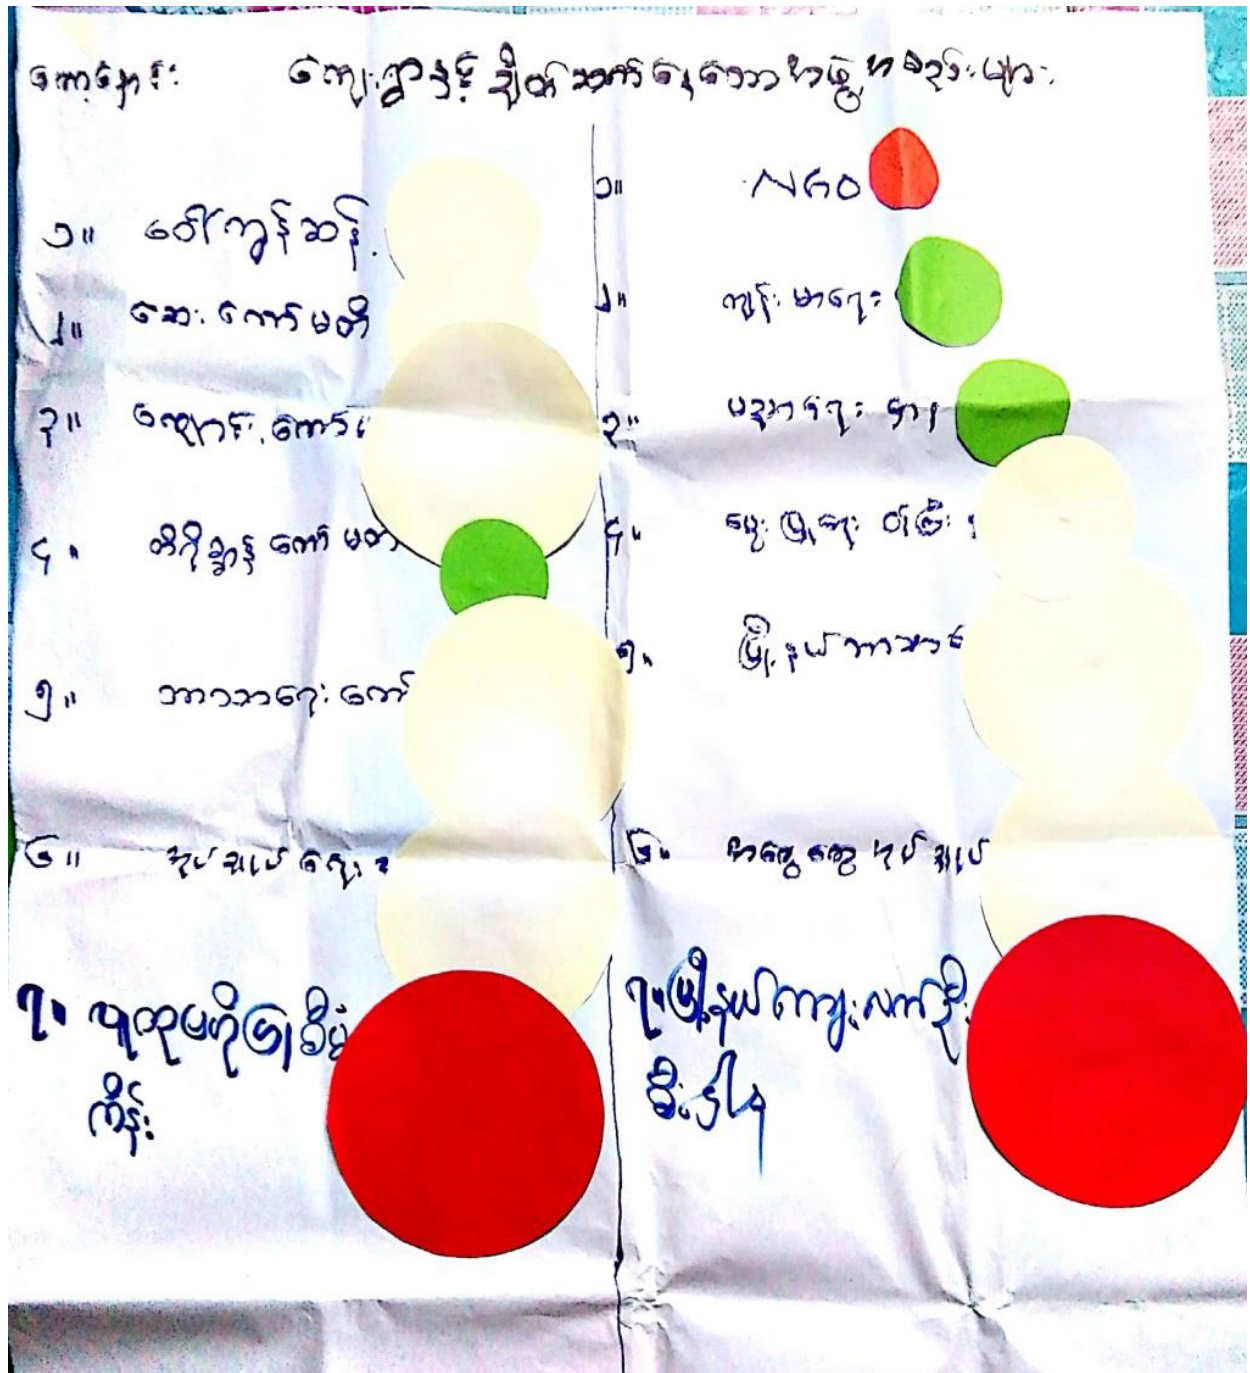 ကျေးရွာနှင့် ချိတ်ဆက်နေသော အဖွဲ့အစည်းများ
၁။
၂။ ဆေး ကော်မတီ
၃။ ကျောင်း ကော်
၄။ ကော်မတ
၅။ ဘာသာရေး ကော်
၆။ အုပ်ချုပ်ရေး
၇။ လူထုဗဟိုပြု စီမံ
ကိန်း
၁။ NGO
၂။ ကျန်းမာရေး
၃။ ပညာရေး ဌာန
၄။ မွေးမြူရေး
၅။ မြို့နယ် ဘာသာ
၆။ အထွေထွေ အုပ်ချုပ်
၇။ မြို့နယ် ကျေးလက် ဦး
စီးဌာန